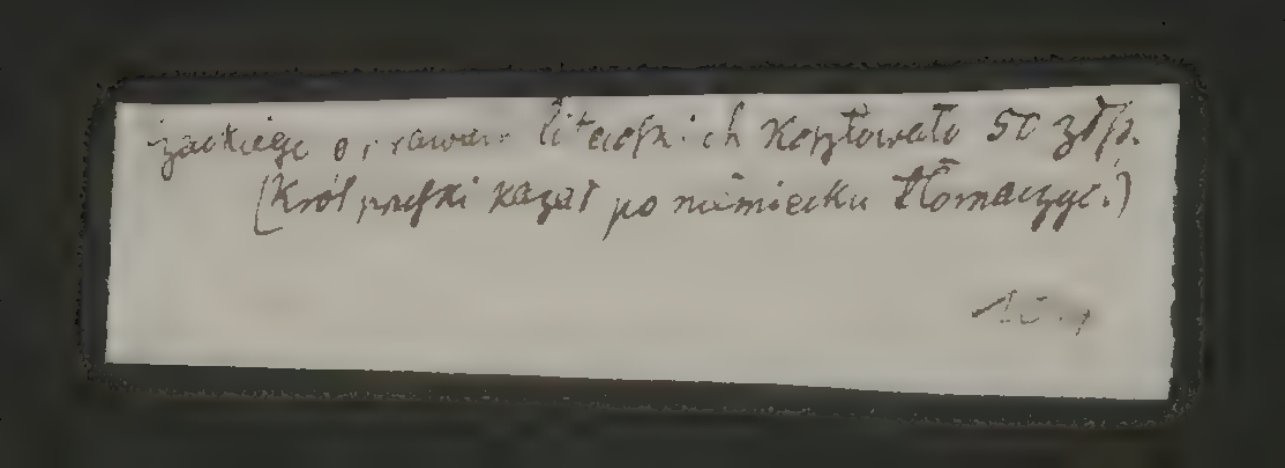 Czackiego o prawach litewskich kosztowało 50 złp.
(Król pruski kazał po niemiecku tłomaczyć.)